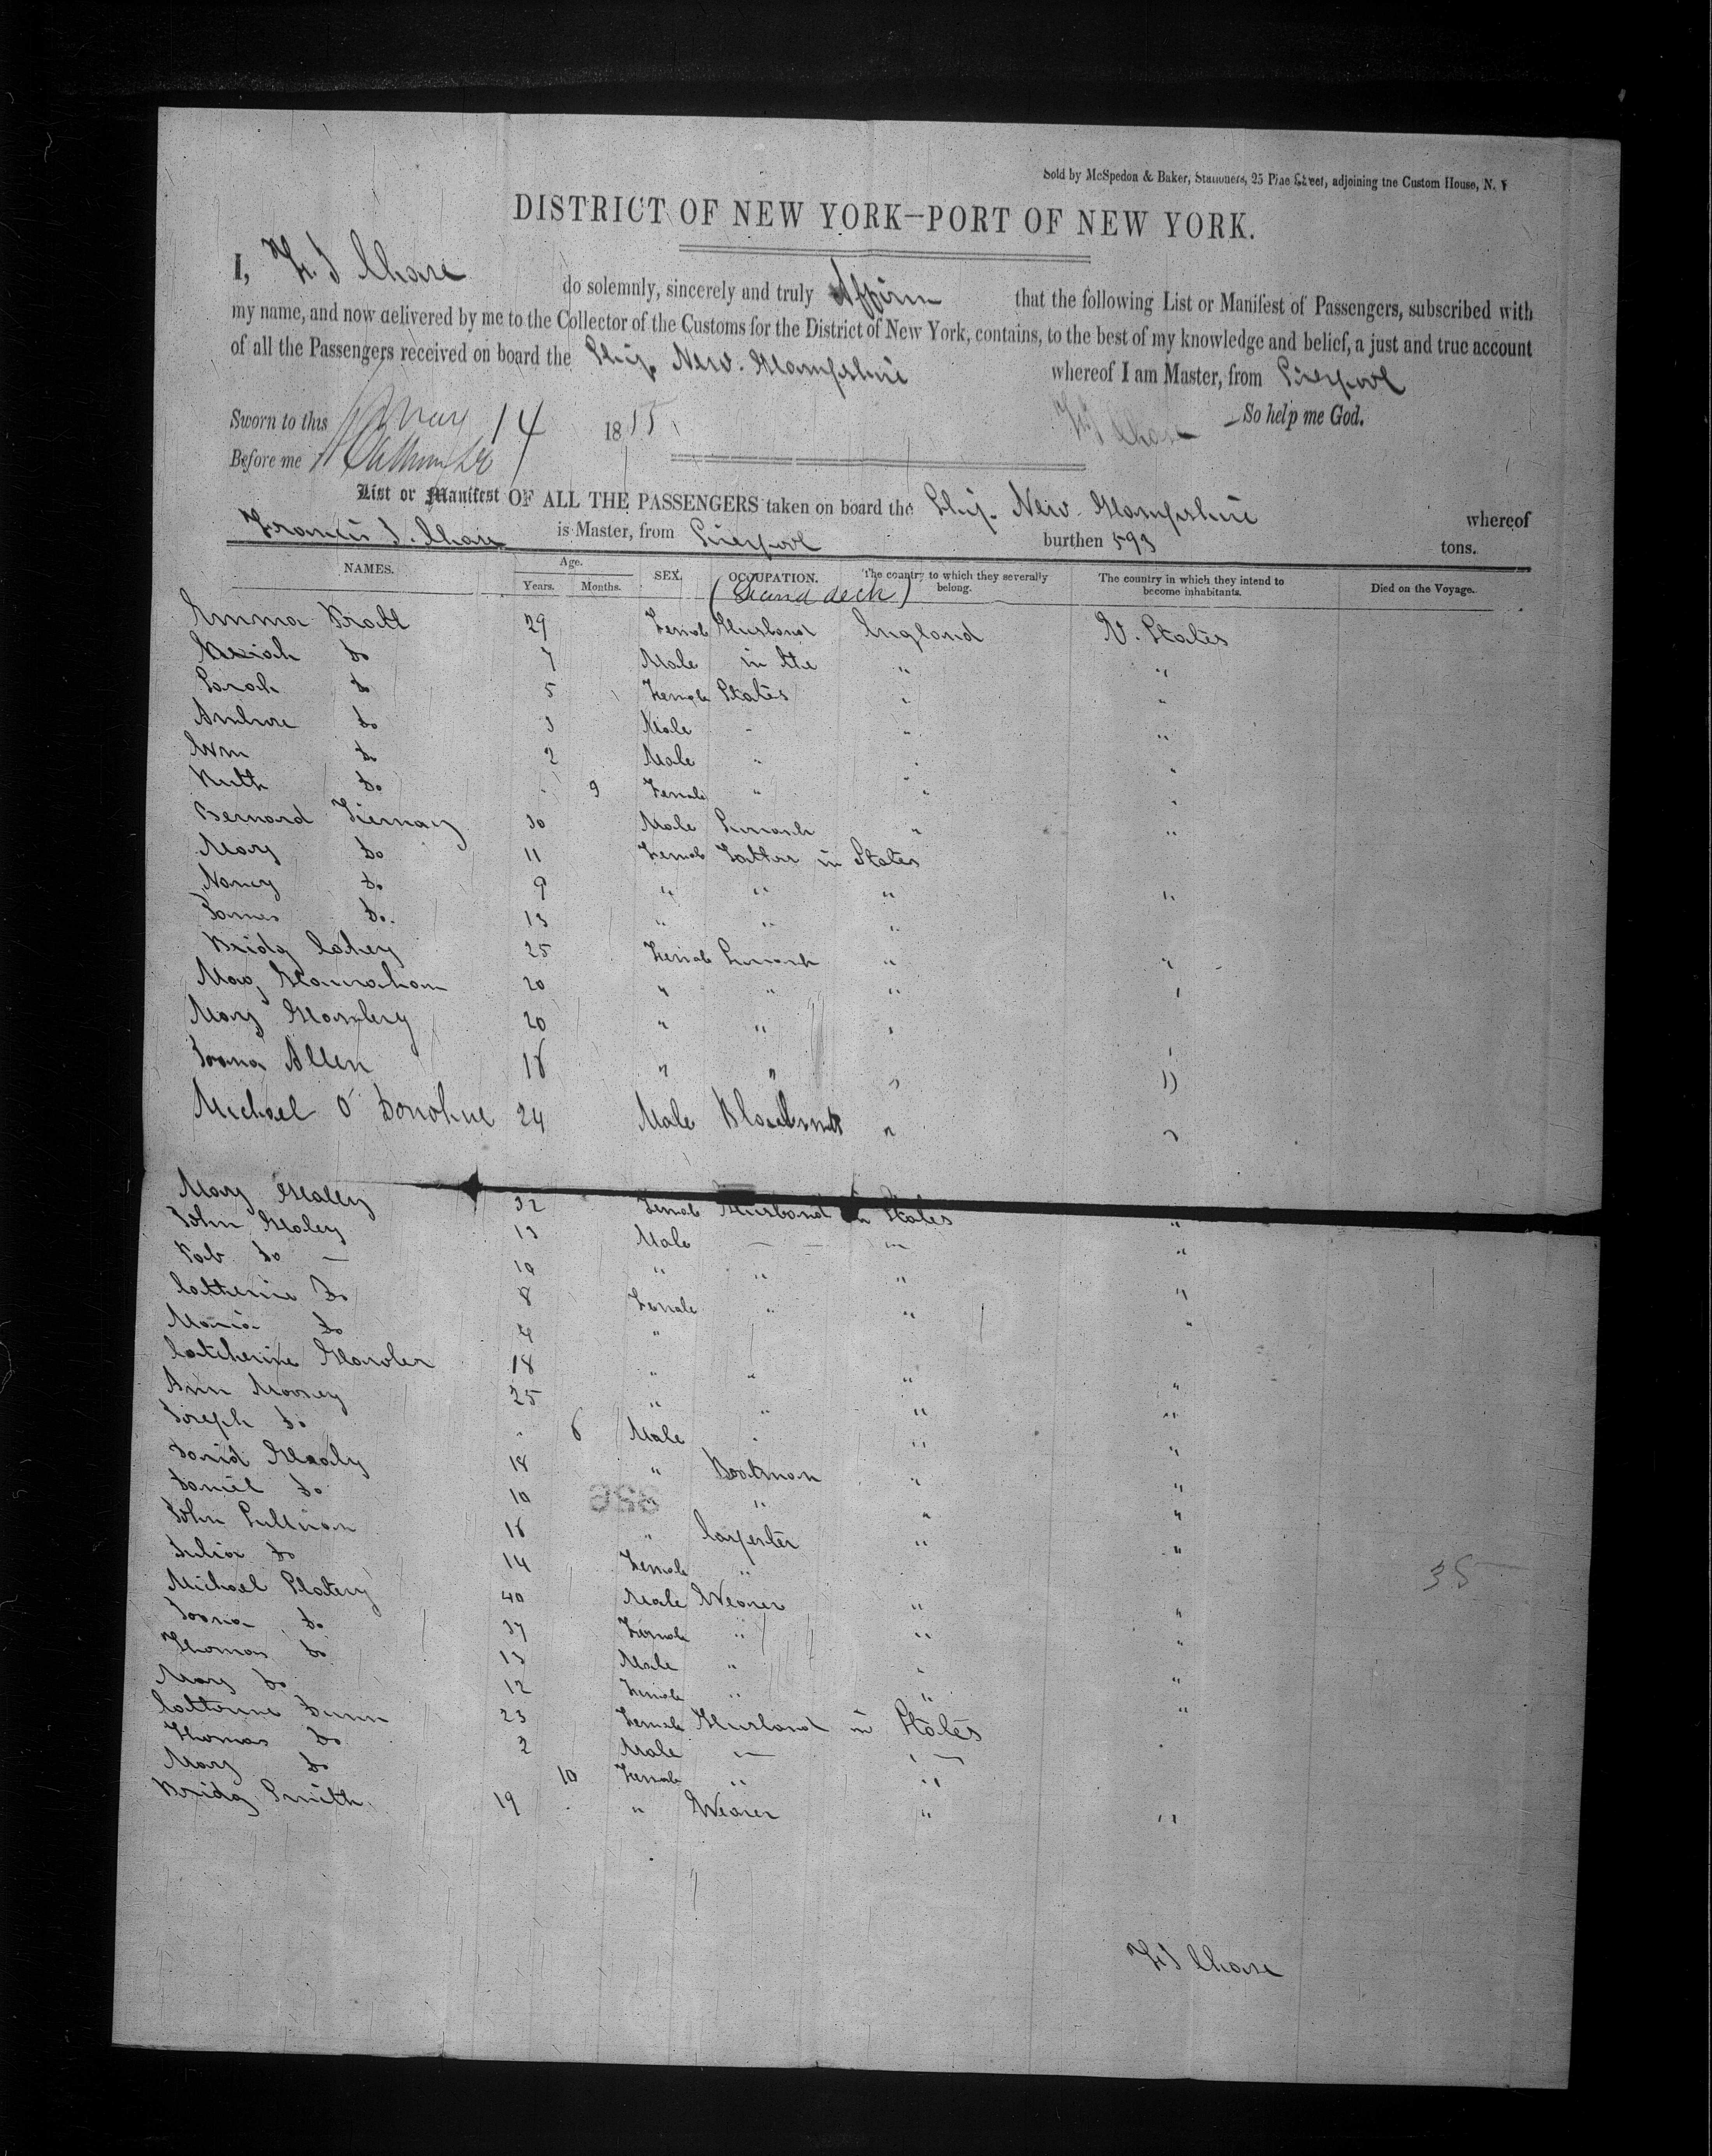 Sold by McSpedon & Baker, Stationers, 25 Pine Street, adjoining the Custom House, N. Y
DISTRICT OF NEW YORK—PORT OF NEW YORK.
I, F. J Chase do solemnly, sincerely and truly Affirm that the following List or Manifest of Passengers, subscribed with
my name, and now delivered by me to the Collector of the Customs for the District of New York, contains, to the best of my knowledge and belief, a just and true account
of all the Passengers received on board the Ship New. Hampshire whereof I am Master, from Liverpool
Sworn to this May 14 1855 FJ Chase So help me God.
Before me
List or Manifest OF ALL THE PASSENGERS taken on board the Ship. New. Hampshire whereof
Francis J. Chase is Master, from Liverpool burthen 593 tons.
NAMES. Age. Years. Months. SEX. OCCUPATION. The country to which they severally belong. The country in which they intend to become inhabitants. Died on the Voyage.
(Second deck)
Emma Pratt 29 Female Husband England U. States
Do 7 Male in the " "
Sarah Do 5 Female States " "
Do 3 Male " " "
Wm Do 2 Male " " "
Ruth Do 9 Female " " "
Bernard Tiernay 30 Male " "
Mary Do 11 Female Father in States
Nancy Do 9 " " " "
James Do. 13 " " "
Bridg 25 Female " "
Mary 20 " " " "
Mary 20 " " "
Allen 18 " " " "
Michael O' Donohue 24 Male Blacksmith " "
Mary Healey 32 Female Husband in States "
John Healey 13 Male — — " "
Do — 10 " " " "
Catherine Do 8 Female " " "
Maria Do 4 "
Catcherine 18 " " " "
Ann Mooney 25 " " " "
Joseph Do 6 Male " " "
David 18 " Boatman " "
Daniel Do 10 " " " "
John Sullivan 18 " Carpenter " "
Julia Do 14 Female "
Michael Slatery 40 Male Weaver " "
Do 37 Female " " "
Thomas Do 13 Male " " "
Mary Do 12 Female " " "
Catterine Dunn 23 Female Husband in States
Thomas Do 2 Male — " —
Mary Do 10 Female " "
Bridg Smith. 19 " Weaver " "
35
FJ Chase